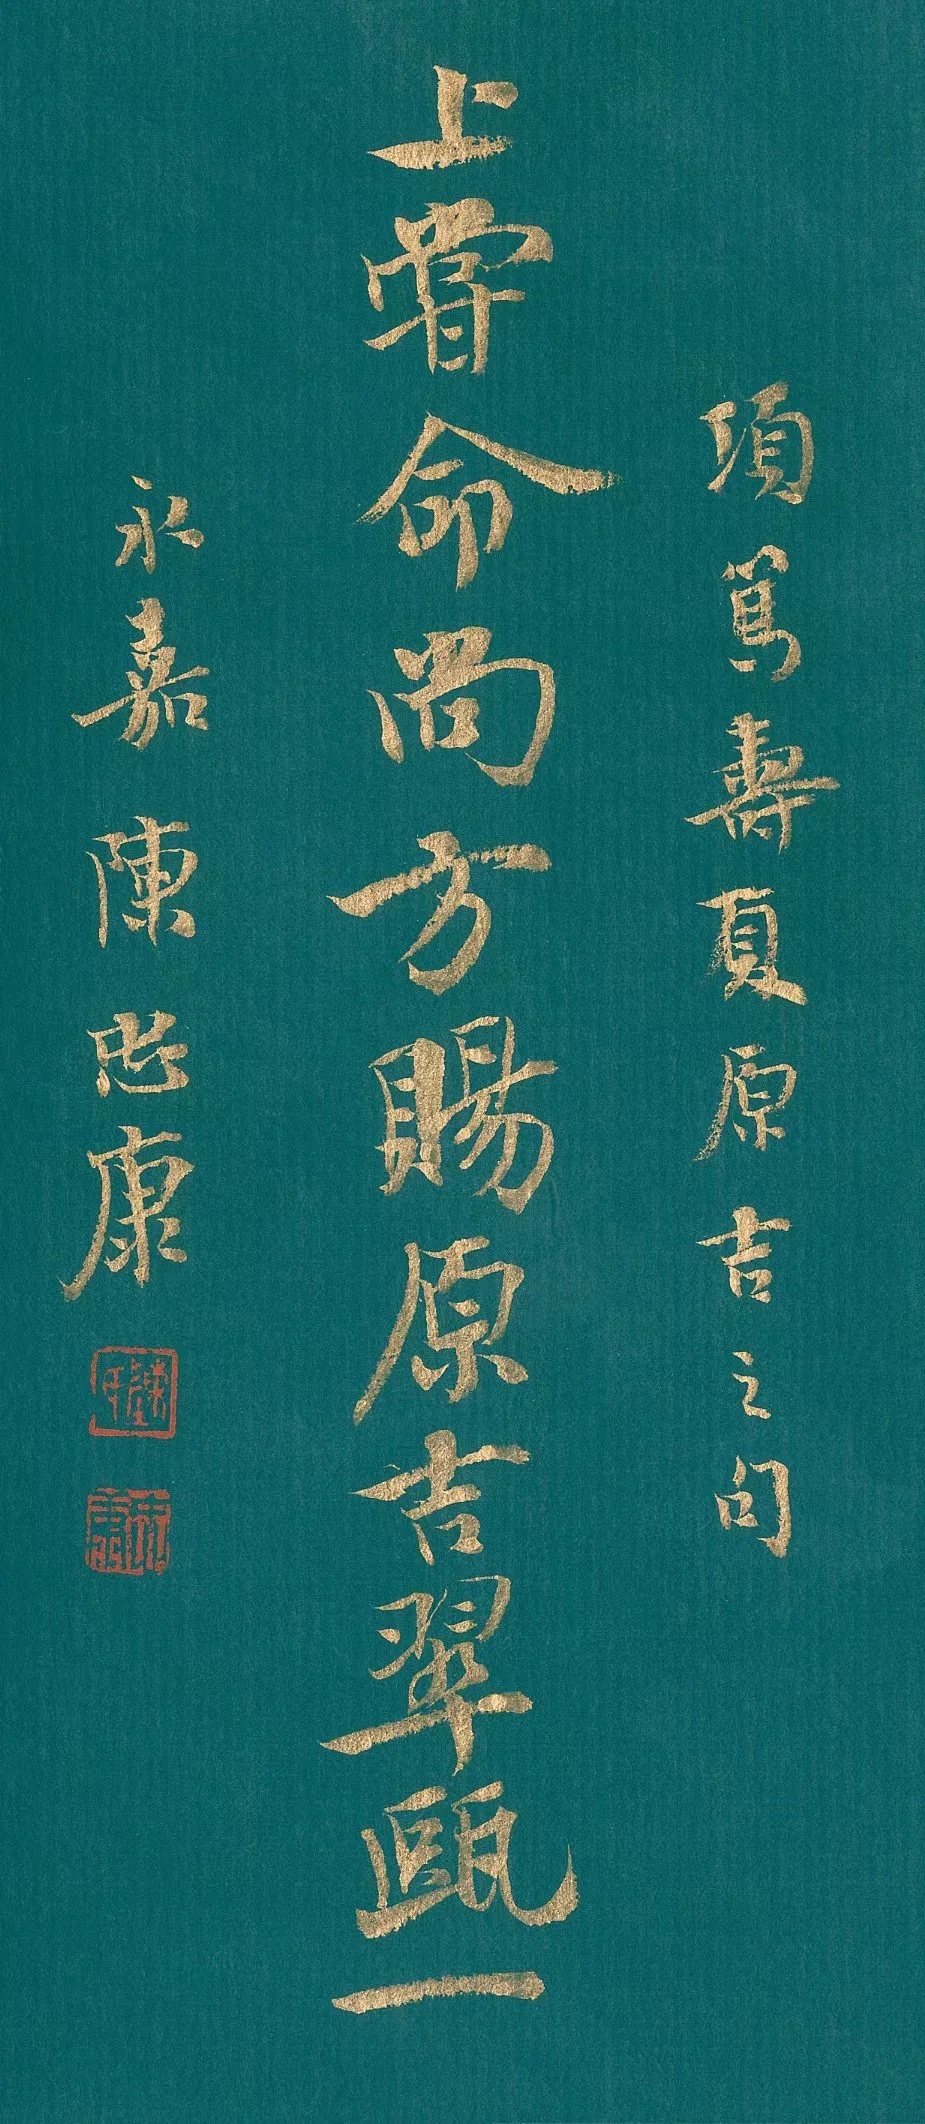 項篤壽夏原吉之句
上甞命尚方賜原吉翠甌一
永嘉陳忠康